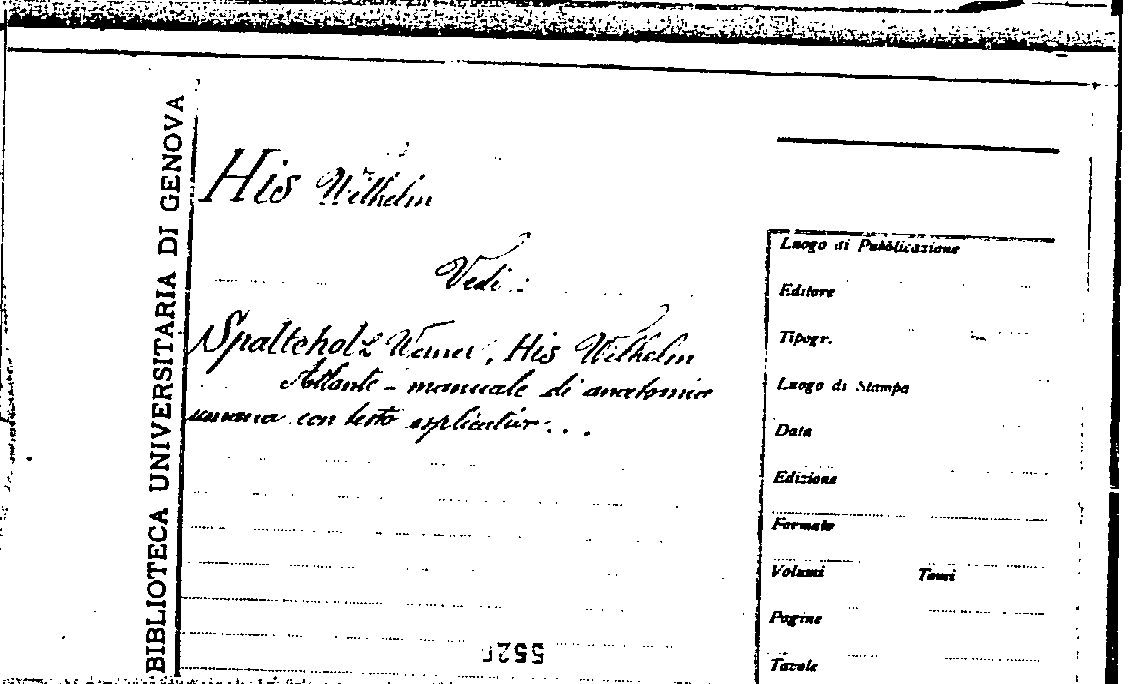 BIBLIOTECA UNIVERSITARIA DI GENOVA
His Wilhelm
Vedi:
Spalteholz Werner, His Wilhelm
Atlante-manuale di anatomia
umana con testo esplicativo...
Luogo di Pubblicazione
Editore
Tipogr.
Luogo di Stampa
Data
Edizione
Formato
Volumi Tomi
Pagine
Tavole